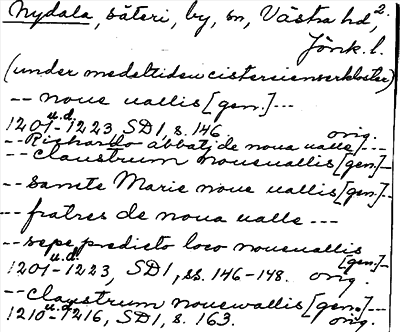 Nydala, säteri, by, sn, Västra hd,²·
Jönk. l.
(under medeltiden cistersienserkloster)
-- noue uallis [gen.] ---
1201 u.d. - 1223 SD 1, s. 146 orig.
-- Richardo abbati de noua ualle ] ---
-- claustrum noueuallis [gen.] -
-- sancte Marie noue uallis [gen.] --
-- fratres de noua ualle ---
-- sepe predicto loco noueuallis [gen.] -
1201 u.d. - 1223, SD 1, ss. 146-148. orig.
-- claustrum nouewallis [gen.] ---
1210 u.d. - 1216, SD 1, s. 163 orig.